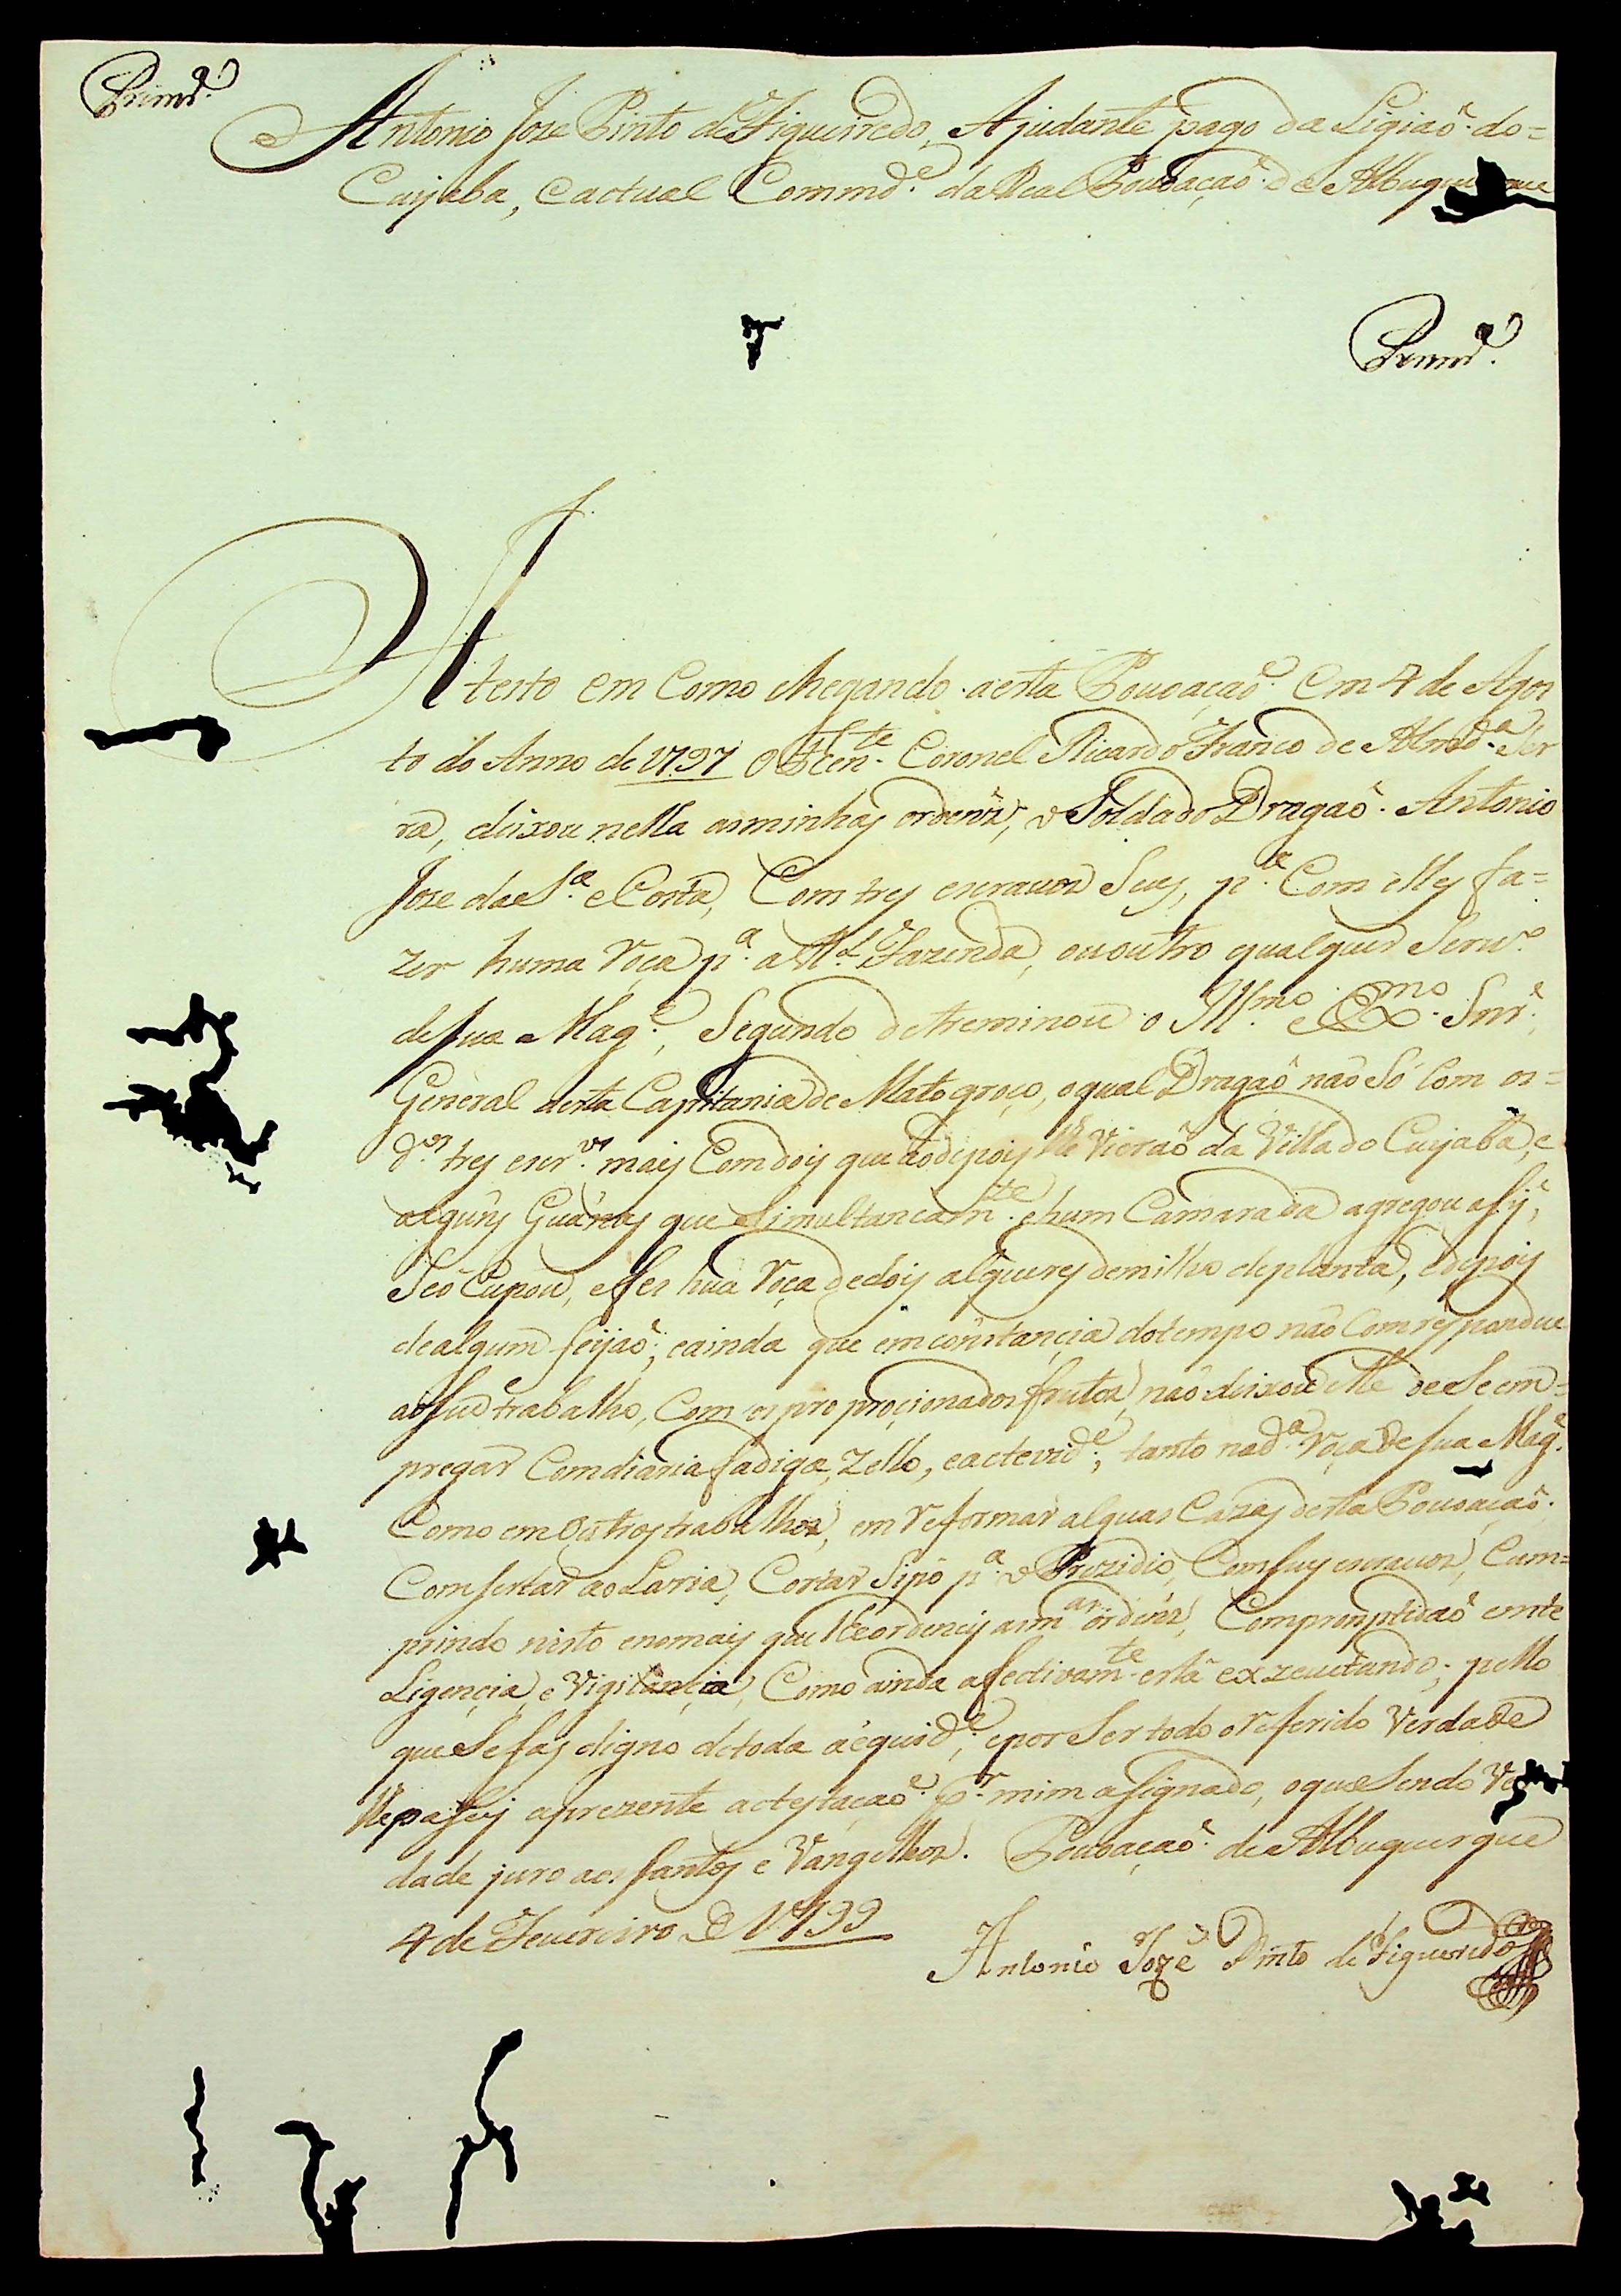 Antonio Joze Pinto de Figueiredo, Ajudante pago da Ligiaõ. do=
Cuyaba, e actual Commd.e da Real Povoaçaõ. de Albuquerque
Atesto em Como chegando. a esta Povoaçaõ. Em 4 de Agos
to do Anno de 1797 O Then.te Coronel Ricardo Franco de Almd.a Ser
ra, deixou nella as minhas ordens, o Soldado Dragaõ. Antonio
Joze da S.a e Costa, Com tres escravos Seus, p.a Com elles fa=
zer huma roça p.a a R.l Fazenda, ou outro qualquer Serv.o
de sua Mag.e, Segundo detreminou o Ill.mo e Ex.mo Snr.
General desta Capitania de Matogroço, o qual Dragaõ não Só Com os=
d.os tres escr.os mais Com dois que ao depois lhe Vieraõ da Villa do Cuyabá, e
alguñs Guánas que Simultaneam.te e hum Camarada agregou a Sy,
Se ócupou, e fes huã roça de dois alqueres de milho de planta, e depois
de algum feijaõ; e ainda que em constancia do tempo não Com respondue
ao Seu trabalho, Com os pro proçionados frutos, não deixou elle de Se em=
pregar Com diaria fadiga, Zello, e actevid.e, tanto na d.a roça de sua Mag.e
Como em Outros trabalhos, em reformar alguas Cazas desta Povoaçaõ.
Com sertar ao Larria, Cortar Sipó p.a o Prezidio, Com seus escravos, Cum=
prindo nisto e no mais que lhe ordeney as m.as ordens, Com promptidaõ emte
Ligençia, e Vigilancia, Como ainda afectivam.te está exzecutando; pello
que Se fas digno de toda a equid.e; e por Ser todo o referido Verdade
lhe pasey a prezente actestaçaõ. p.r mim asignado, o que Sendo Ver
dade juro aos Santos e Vangelhos. Povoaçaõ. de Albuquerque
4 de Fevereiro de 1799
Antonio Jozé Pinto de Figueiredo